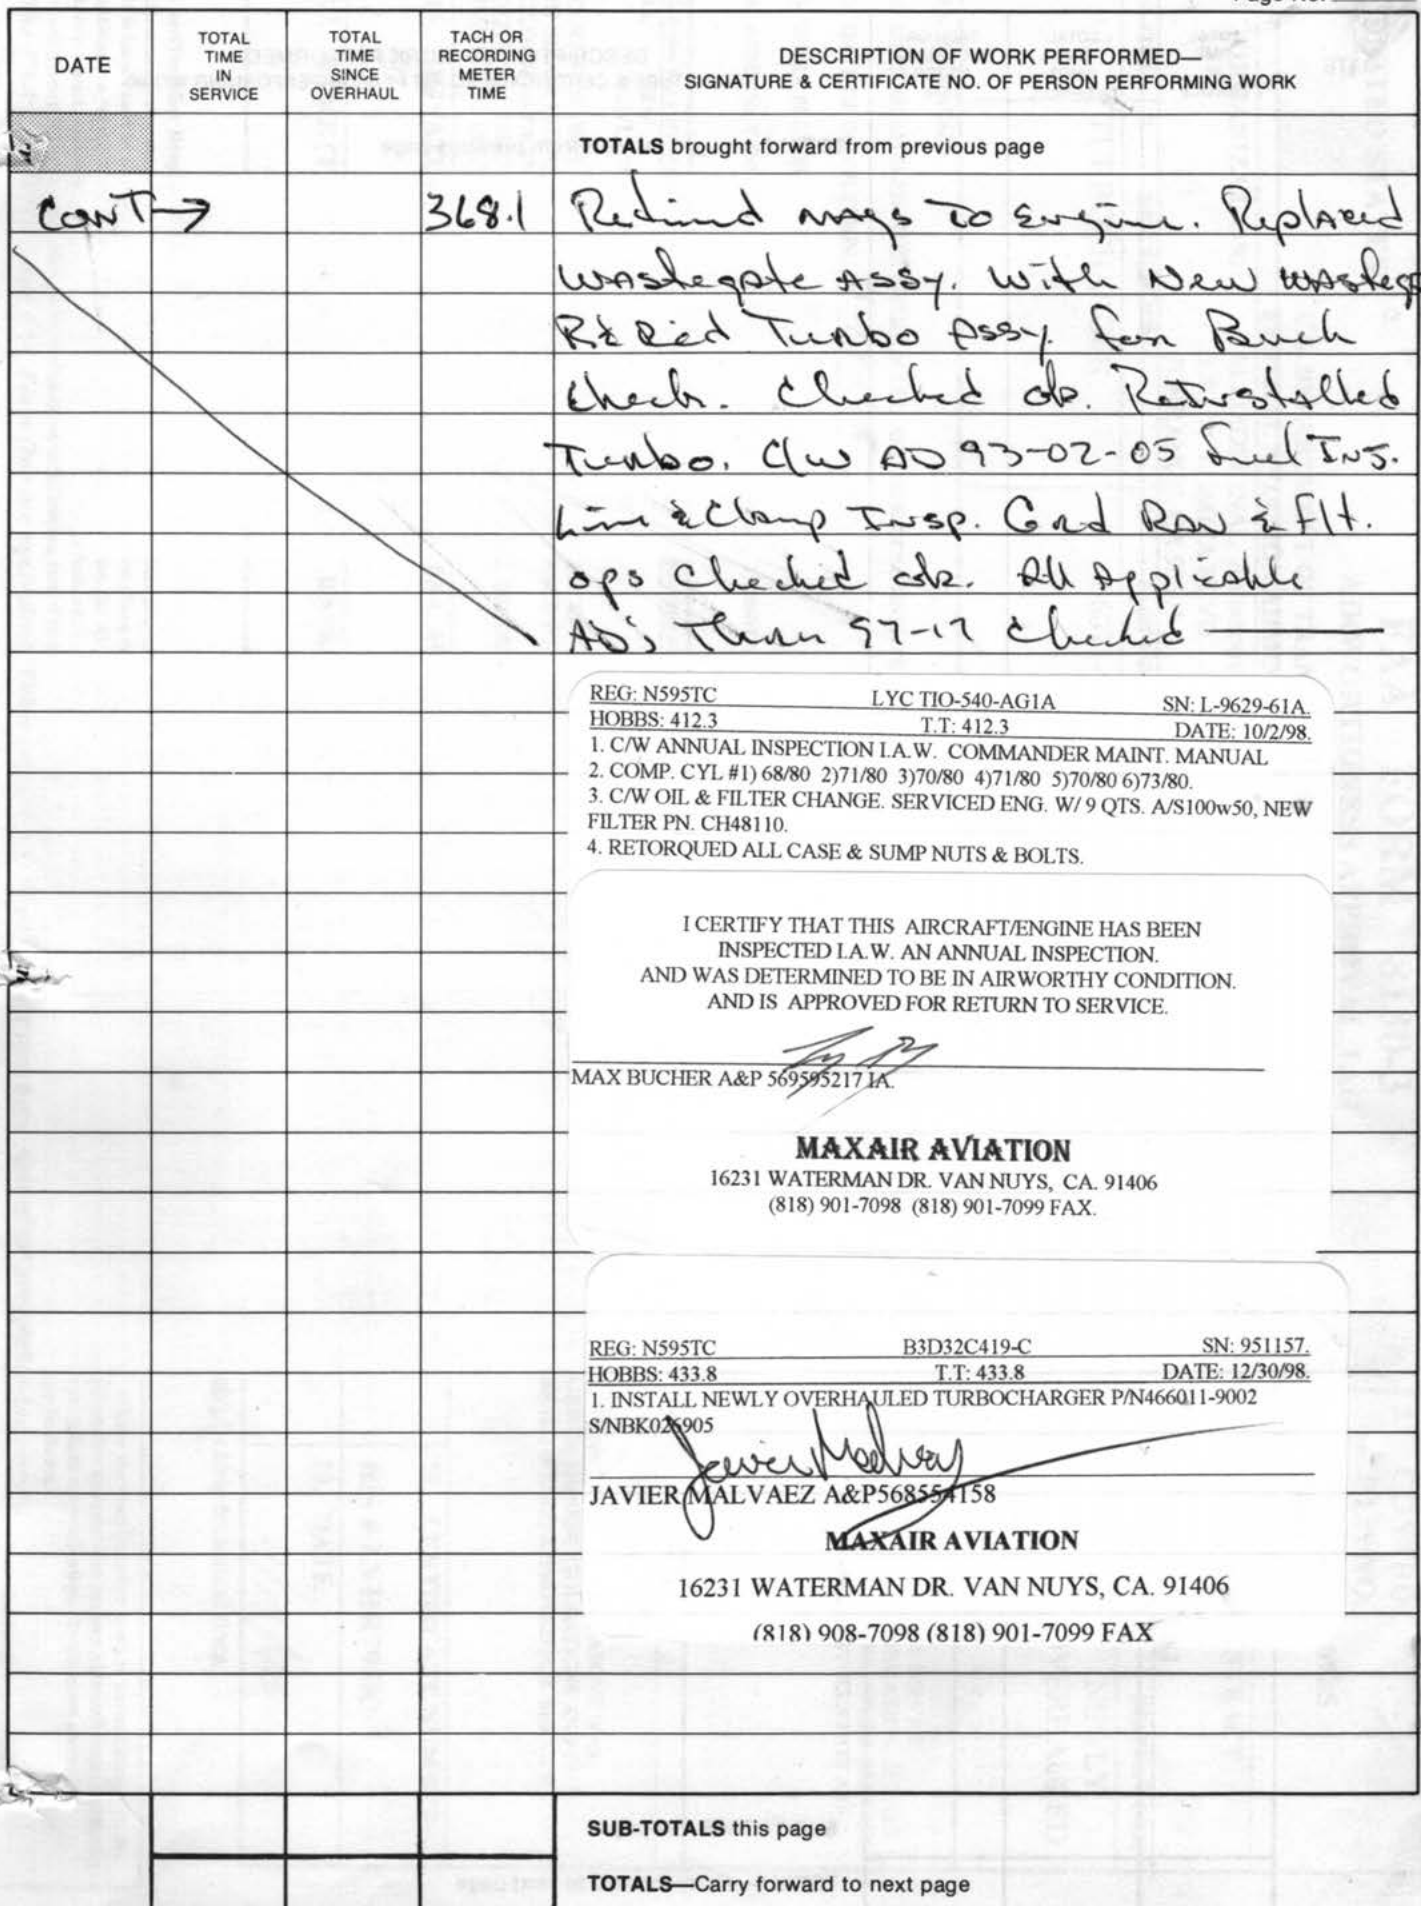 Page No.
DATE
TOTAL TIME IN SERVICE
TOTAL TIME SINCE OVERHAUL
TACH OR RECORDING METER TIME
DESCRIPTION OF WORK PERFORMED—
SIGNATURE & CERTIFICATE NO. OF PERSON PERFORMING WORK
TOTALS brought forward from previous page
CONT→ 368.1 Retimed mags To Engine. Replaced
Wastegate Assy. With New Wasteg
R&Red Turbo Assy. for Bench
Check. Checked ok. Reinstalled
Turbo. C/W AD 93-02-05 Fuel Inj.
Line & Clamp Insp. Gnd Run & Flt.
ops Checked ok. All Applicable
AD's Thru 97-17 Checked
REG: N595TC LYC TIO-540-AG1A SN: L-9629-61A.
HOBBS: 412.3 T.T: 412.3 DATE: 10/2/98.
1. C/W ANNUAL INSPECTION I.A.W. COMMANDER MAINT. MANUAL
2. COMP. CYL #1) 68/80 2)71/80 3)70/80 4)71/80 5)70/80 6)73/80.
3. C/W OIL & FILTER CHANGE. SERVICED ENG. W/ 9 QTS. A/S100w50, NEW
FILTER PN. CH48110.
4. RETORQUED ALL CASE & SUMP NUTS & BOLTS.
I CERTIFY THAT THIS AIRCRAFT/ENGINE HAS BEEN
INSPECTED I.A.W. AN ANNUAL INSPECTION.
AND WAS DETERMINED TO BE IN AIRWORTHY CONDITION.
AND IS APPROVED FOR RETURN TO SERVICE.
MAX BUCHER A&P 569595217 IA.
MAXAIR AVIATION
16231 WATERMAN DR. VAN NUYS, CA. 91406
(818) 901-7098 (818) 901-7099 FAX.
REG: N595TC B3D32C419-C SN: 951157.
HOBBS: 433.8 T.T: 433.8 DATE: 12/30/98.
1. INSTALL NEWLY OVERHAULED TURBOCHARGER P/N466011-9002
S/NBK026905
Javier Malvaez
JAVIER MALVAEZ A&P568554158
MAXAIR AVIATION
16231 WATERMAN DR. VAN NUYS, CA. 91406
(818) 908-7098 (818) 901-7099 FAX
SUB-TOTALS this page
TOTALS—Carry forward to next page